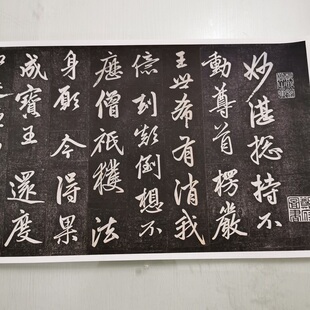 妙湛揔持不
動尊首楞嚴
王世希有消我
億劫顛倒想不
歷僧祇穫法
身願今得果
成寶王還度